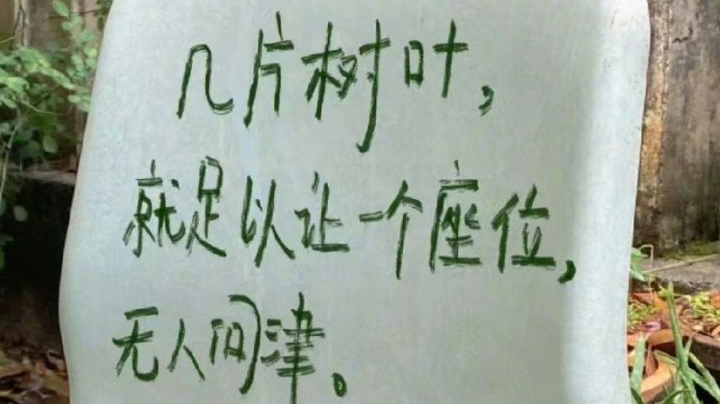 几片树叶，
就足以让一个座位，
无人问津。